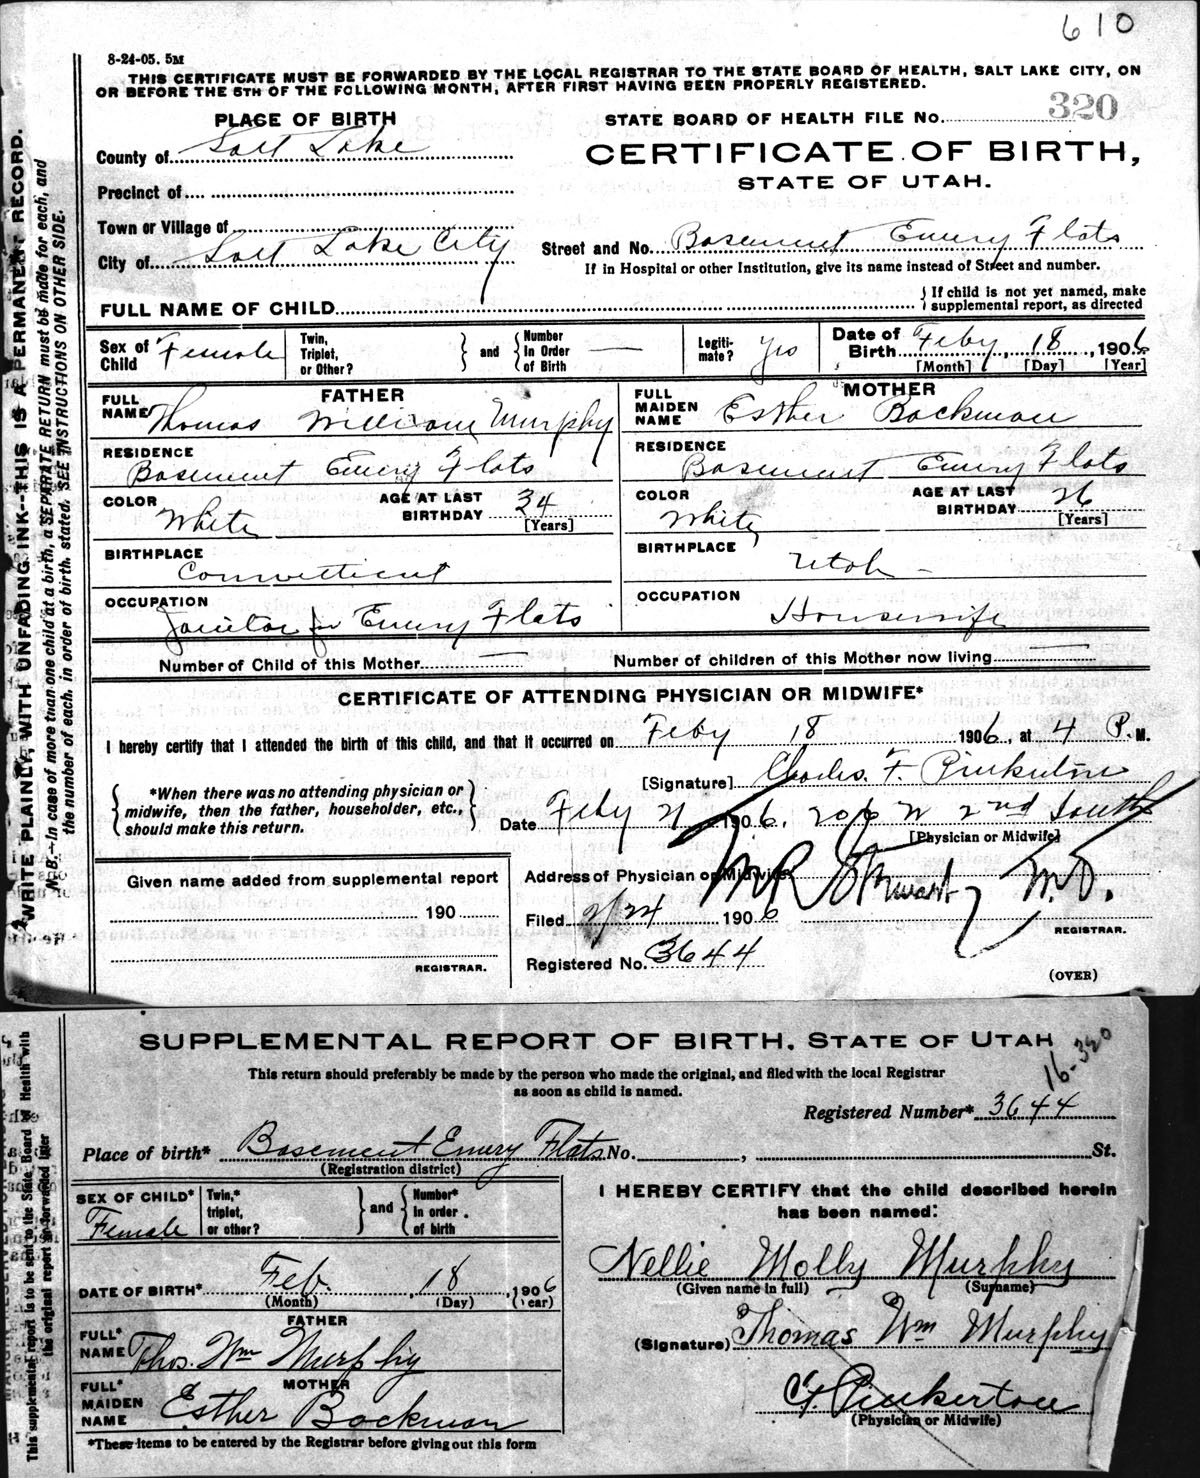 610
8-24-05. 5M
THIS CERTIFICATE MUST BE FORWARDED BY THE LOCAL REGISTRAR TO THE STATE BOARD OF HEALTH, SALT LAKE CITY, ON
OR BEFORE THE 5TH OF THE FOLLOWING MONTH, AFTER FIRST HAVING BEEN PROPERLY REGISTERED.
WRITE PLAINLY, WITH UNFADING INK--THIS IS A PERMANENT RECORD.
N. B.--In case of more than one child at a birth, a SEPARATE RETURN must be made for each, and
the number of each, in order of birth, stated. SEE INSTRUCTIONS ON OTHER SIDE.
PLACE OF BIRTH
STATE BOARD OF HEALTH FILE No. 320
County of Salt Lake
CERTIFICATE OF BIRTH,
STATE OF UTAH.
Precinct of
Town or Village of
City of Salt Lake City
Street and No. Basement Emery Flats
If in Hospital or other Institution, give its name instead of Street and number.
FULL NAME OF CHILD
} If child is not yet named, make
supplemental report, as directed
Sex of Child Female
Twin, Triplet, or Other?
} and {
Number In Order of Birth —
Legiti- mate? Yes
Date of Birth Feby 18, 1906
[Month] [Day] [Year]
FATHER
FULL NAME Thomas William Murphy
MOTHER
FULL MAIDEN NAME Esther Backman
RESIDENCE
Basement Emery Flats
RESIDENCE
Basement Emery Flats
COLOR White
AGE AT LAST BIRTHDAY 34
[Years]
COLOR White
AGE AT LAST BIRTHDAY 26
[Years]
BIRTHPLACE
Connetticut
BIRTHPLACE
Utah -
OCCUPATION
Janitor for Emery Flats
OCCUPATION
Housewife
Number of Child of this Mother
Number of children of this Mother now living
CERTIFICATE OF ATTENDING PHYSICIAN OR MIDWIFE*
I hereby certify that I attended the birth of this child, and that it occurred on Feby 18 1906, at 4 P. M.
[Signature] Charles. F. Pinkerton
{ *When there was no attending physician or
midwife, then the father, householder, etc.,
should make this return. }
Date Feby 21 1906. 206 W 2nd South
[Physician or Midwife]
Given name added from supplemental report
190
REGISTRAR.
Address of Physician or Midwife
M R Stewart M.D.
Filed 2/24 1906
REGISTRAR.
Registered No. 3644
(OVER)
SUPPLEMENTAL REPORT OF BIRTH, STATE OF UTAH
16-320
This return should preferably be made by the person who made the original, and filed with the local Registrar
as soon as child is named.
This supplemental report is to be sent to the State Board of Health with
the original report or forwarded later
Registered Number* 3644
Place of birth* Basement Emery Flats No. , St.
(Registration district)
SEX OF CHILD* Female
Twin,* triplet, or other?
} and {
Number* in order of birth
DATE OF BIRTH* Feb. 18, 1906
(Month) (Day) (Year)
FATHER
FULL* NAME Thos. Wm Murphy
MOTHER
FULL* MAIDEN NAME Esther Backman
*These items to be entered by the Registrar before giving out this form
I HEREBY CERTIFY that the child described herein
has been named:
Nellie Molly Murphy
(Given name in full) (Surname)
(Signature) Thomas Wm Murphy
C F Pinkerton
(Physician or Midwife)